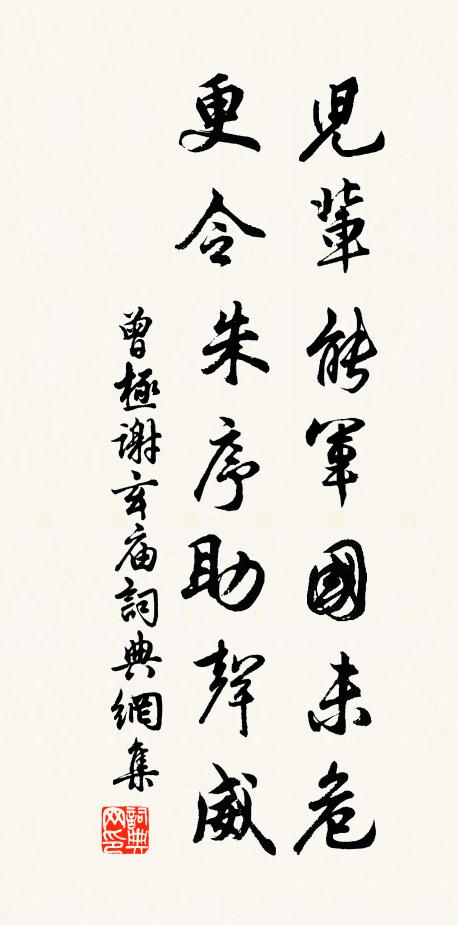 兒輩能軍國未危
更令朱序助聲威
曾極謝玄廟詞典網集
詞典网印